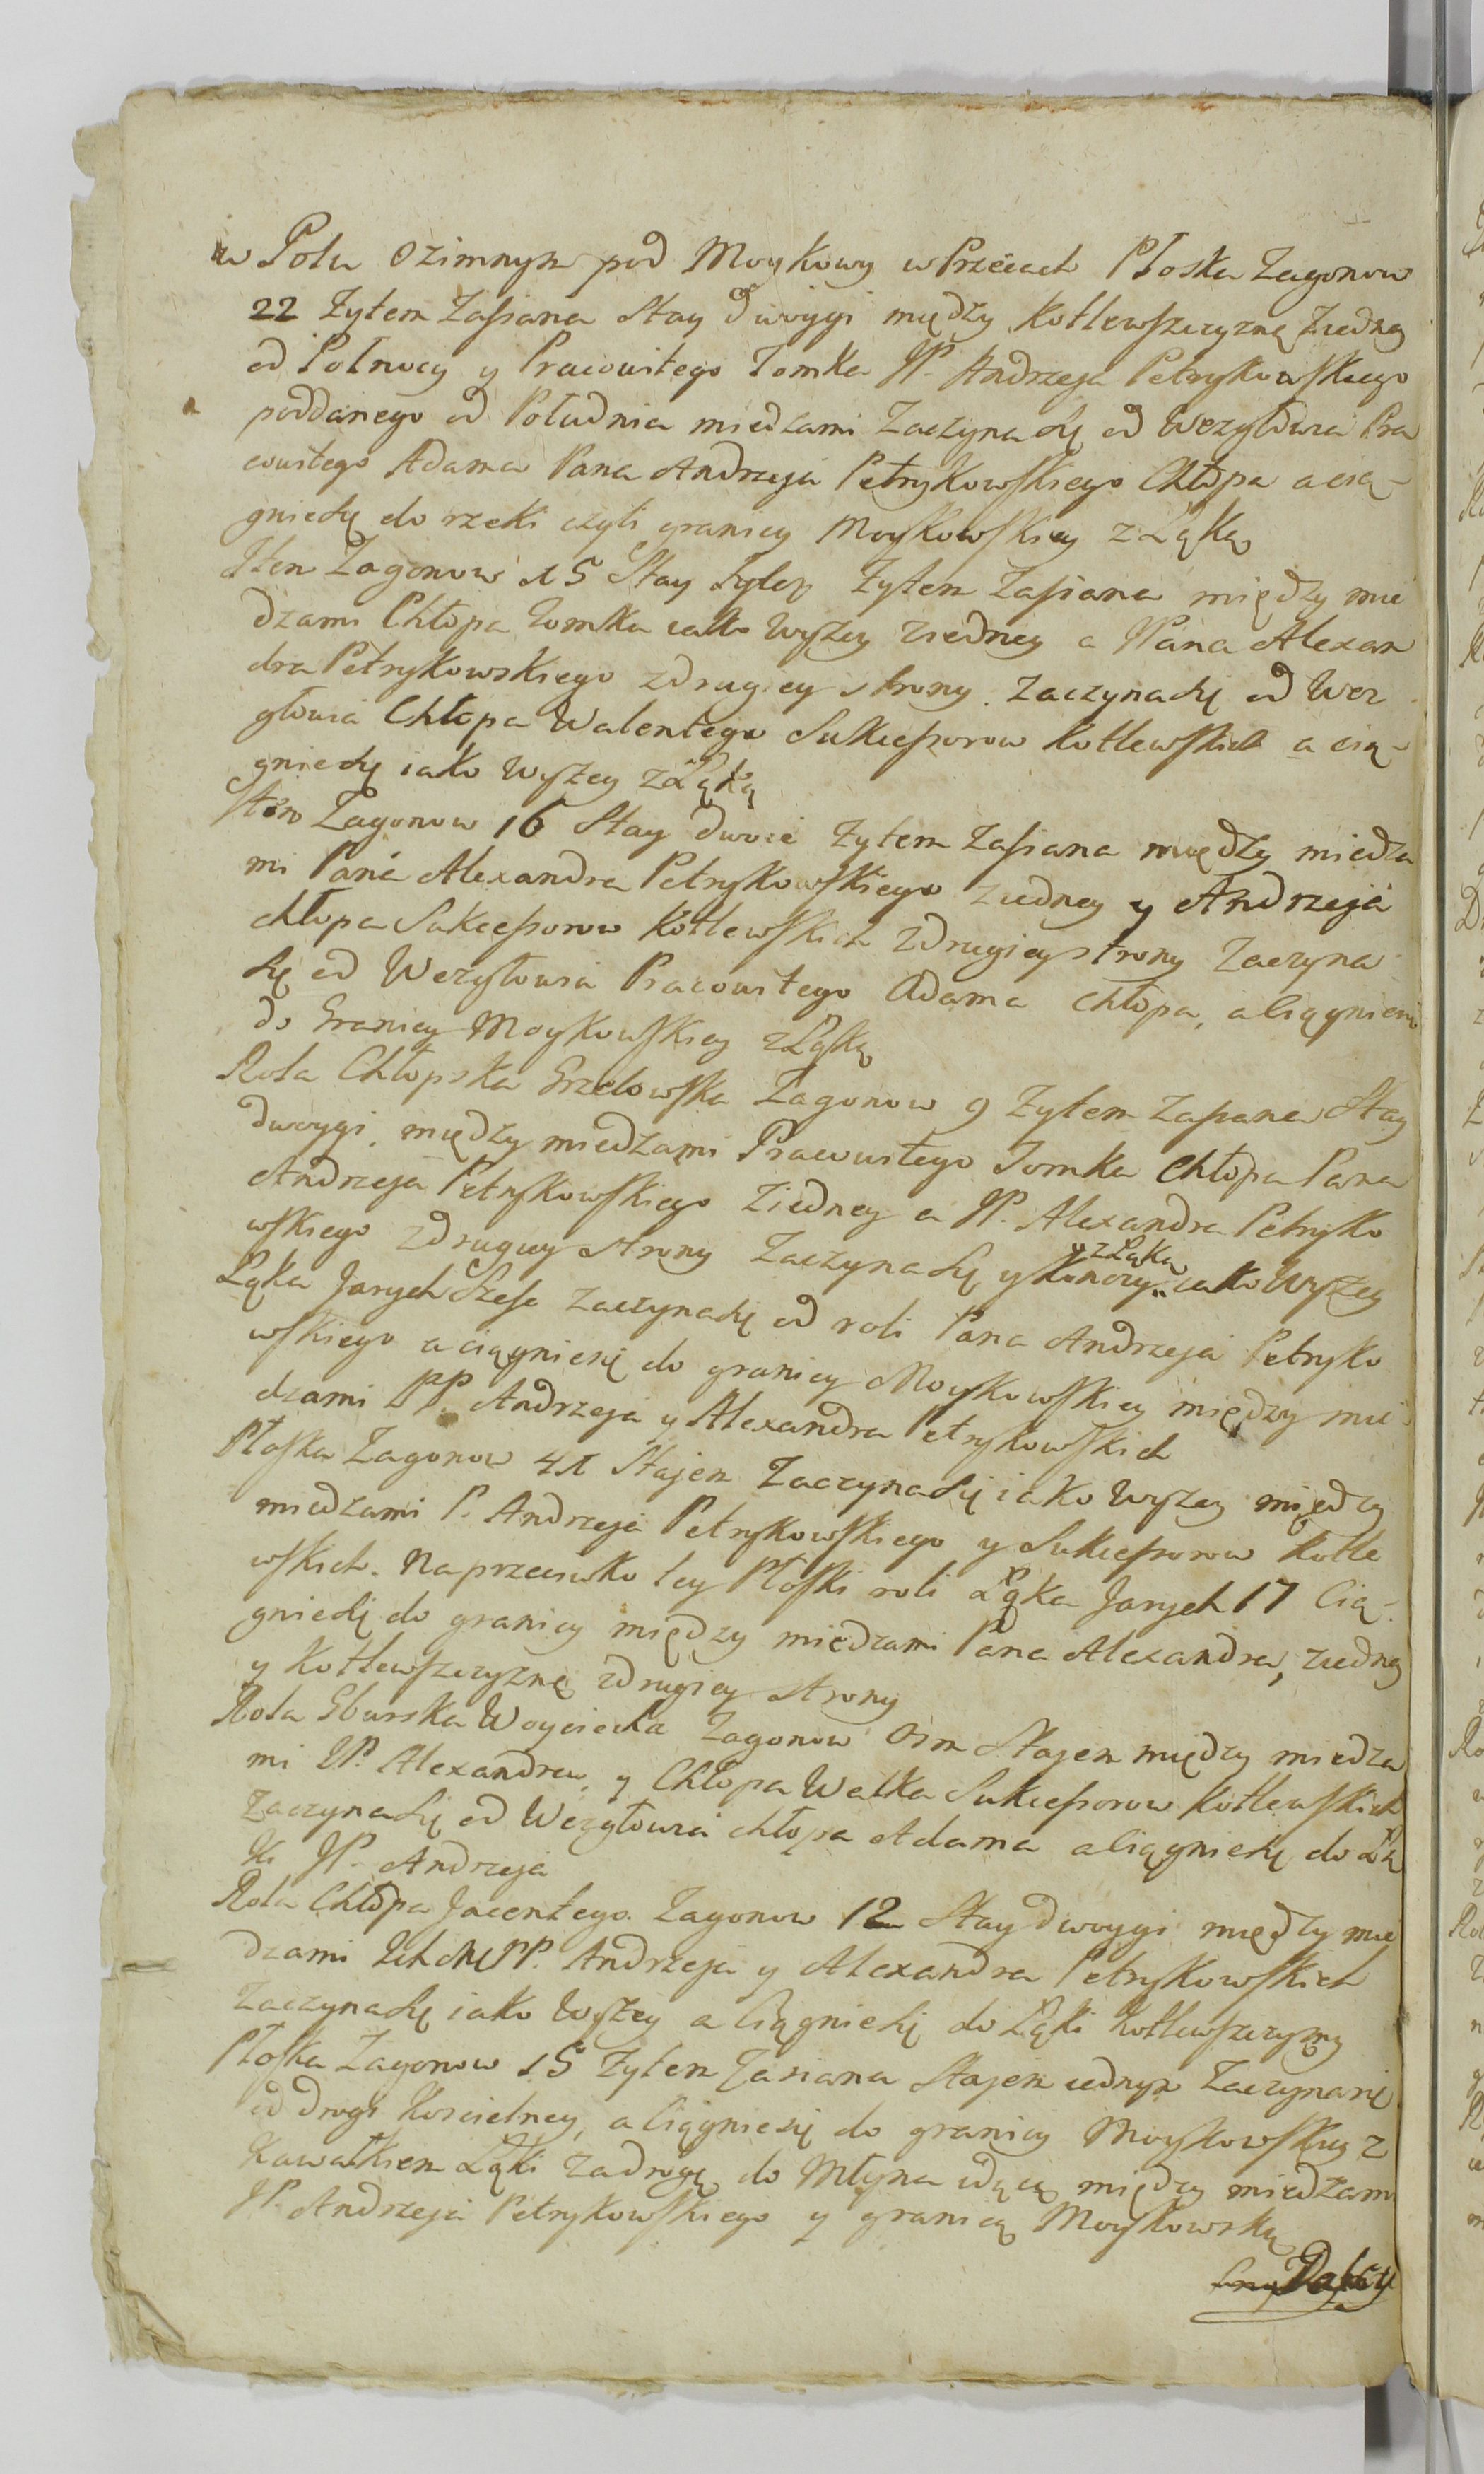 w Polu Ozimnym pod Moykowy w Przecach Płoska Zagonow
22 Żytem Zasiana Stay dwoygi między Kotlewszczyzną ziedney
od Połnocy y Pracowitego Tomka JP. Andrzeja Petrykowskiego
poddanego od Południa miedzami Zaczyna się od Wezgłowia Pra
cowitego Adama Pana Andrzeja Petrykowskiego Chłopa a cią-
gnie się do rzeki czyli granicy Moykowskiey z Łąką
Item Zagonow 15 Stay tyleż Żytem Zasiana między mie
dzami Chłopa Tomka iako Wyżey ziedney a JPana Alexan
dra Petrykowskiego zdrugiey strony. Zaczyna się od Wez
głowia Chłopa Walentego Sukcessorow Kotlewskich a cią-
gnie się iako Wyżey z Łąką
Item Zagonow 16 Stay dwoie Żytem Zasiana między miedza
mi Pana Alexandra Petrykowskiego ziedney y Andrzeja
chłopa Sukcessorow Kotlewskich zdrugiey strony Zaczyna
się od Wezgłowia Pracowitego Adama chłopa, a Ciągnie się
do Granicy Moykowskiey z Łąką
Rola Chłopska Grzelowska Zagonow 9 Żytem Zasiana Stay
dwoygi, między miedzami Pracowitego Tomka Chłopa Pana
Andrzeja Petrykowskiego Ziedney a JP. Alexandra Petryko
wskiego zdrugiey strony Zaczyna się y Konczy z Łąką iako Wyżey
Łąka Jarych Szesc zaczyna się od roli Pana Andrzeja Petryko
wskiego a ciągnie się do granicy Moykowskiey między mie
dzami PP. Andrzeja y Alexandra Petrykowskich
Płoska Zagonow 41 Stajem Zaczyna się iako Wyzey między
miedzami P. Andrzeja Petrykowskiego y Sukcessorow Kotle
wskich. Naprzeciwko tey Płoski roli Łąka Jarych 17 Cią-
gnie się do granicy między miedzami Pana Alexandra, ziedney
y Kotlewszczyzną zdrugiey strony
Rola Gburska Woyciecha Zagonow Osm Stajem między miedza
mi JP. Alexandra, y Chłopa Walka Sukcessorow Kotlewskich
Zaczyna się od Wezgłowia chłopa Adama a Ciągnie się do Łą
ki JP. Andrzeja
Rola Chłopa Jacentego Zagonow 12 Stay dwoygi między mie
dzami PP. Andrzeja y Alexandra Petrykowskich
Zaczyna się iako Wyżey a Ciągnie się do Łąki Kotlewszczyzny
Płoska Zagonow 15 Żytem Zasiana Stajem iednym Zaczyna się
od drogi Koscielney, a Ciągnie się do granicy Moykowskiey z
Kawałkiem Łąki za drogą do Młyna idącą między miedzami
JP. Andrzeja Petrykowskiego y granicą Moykowską